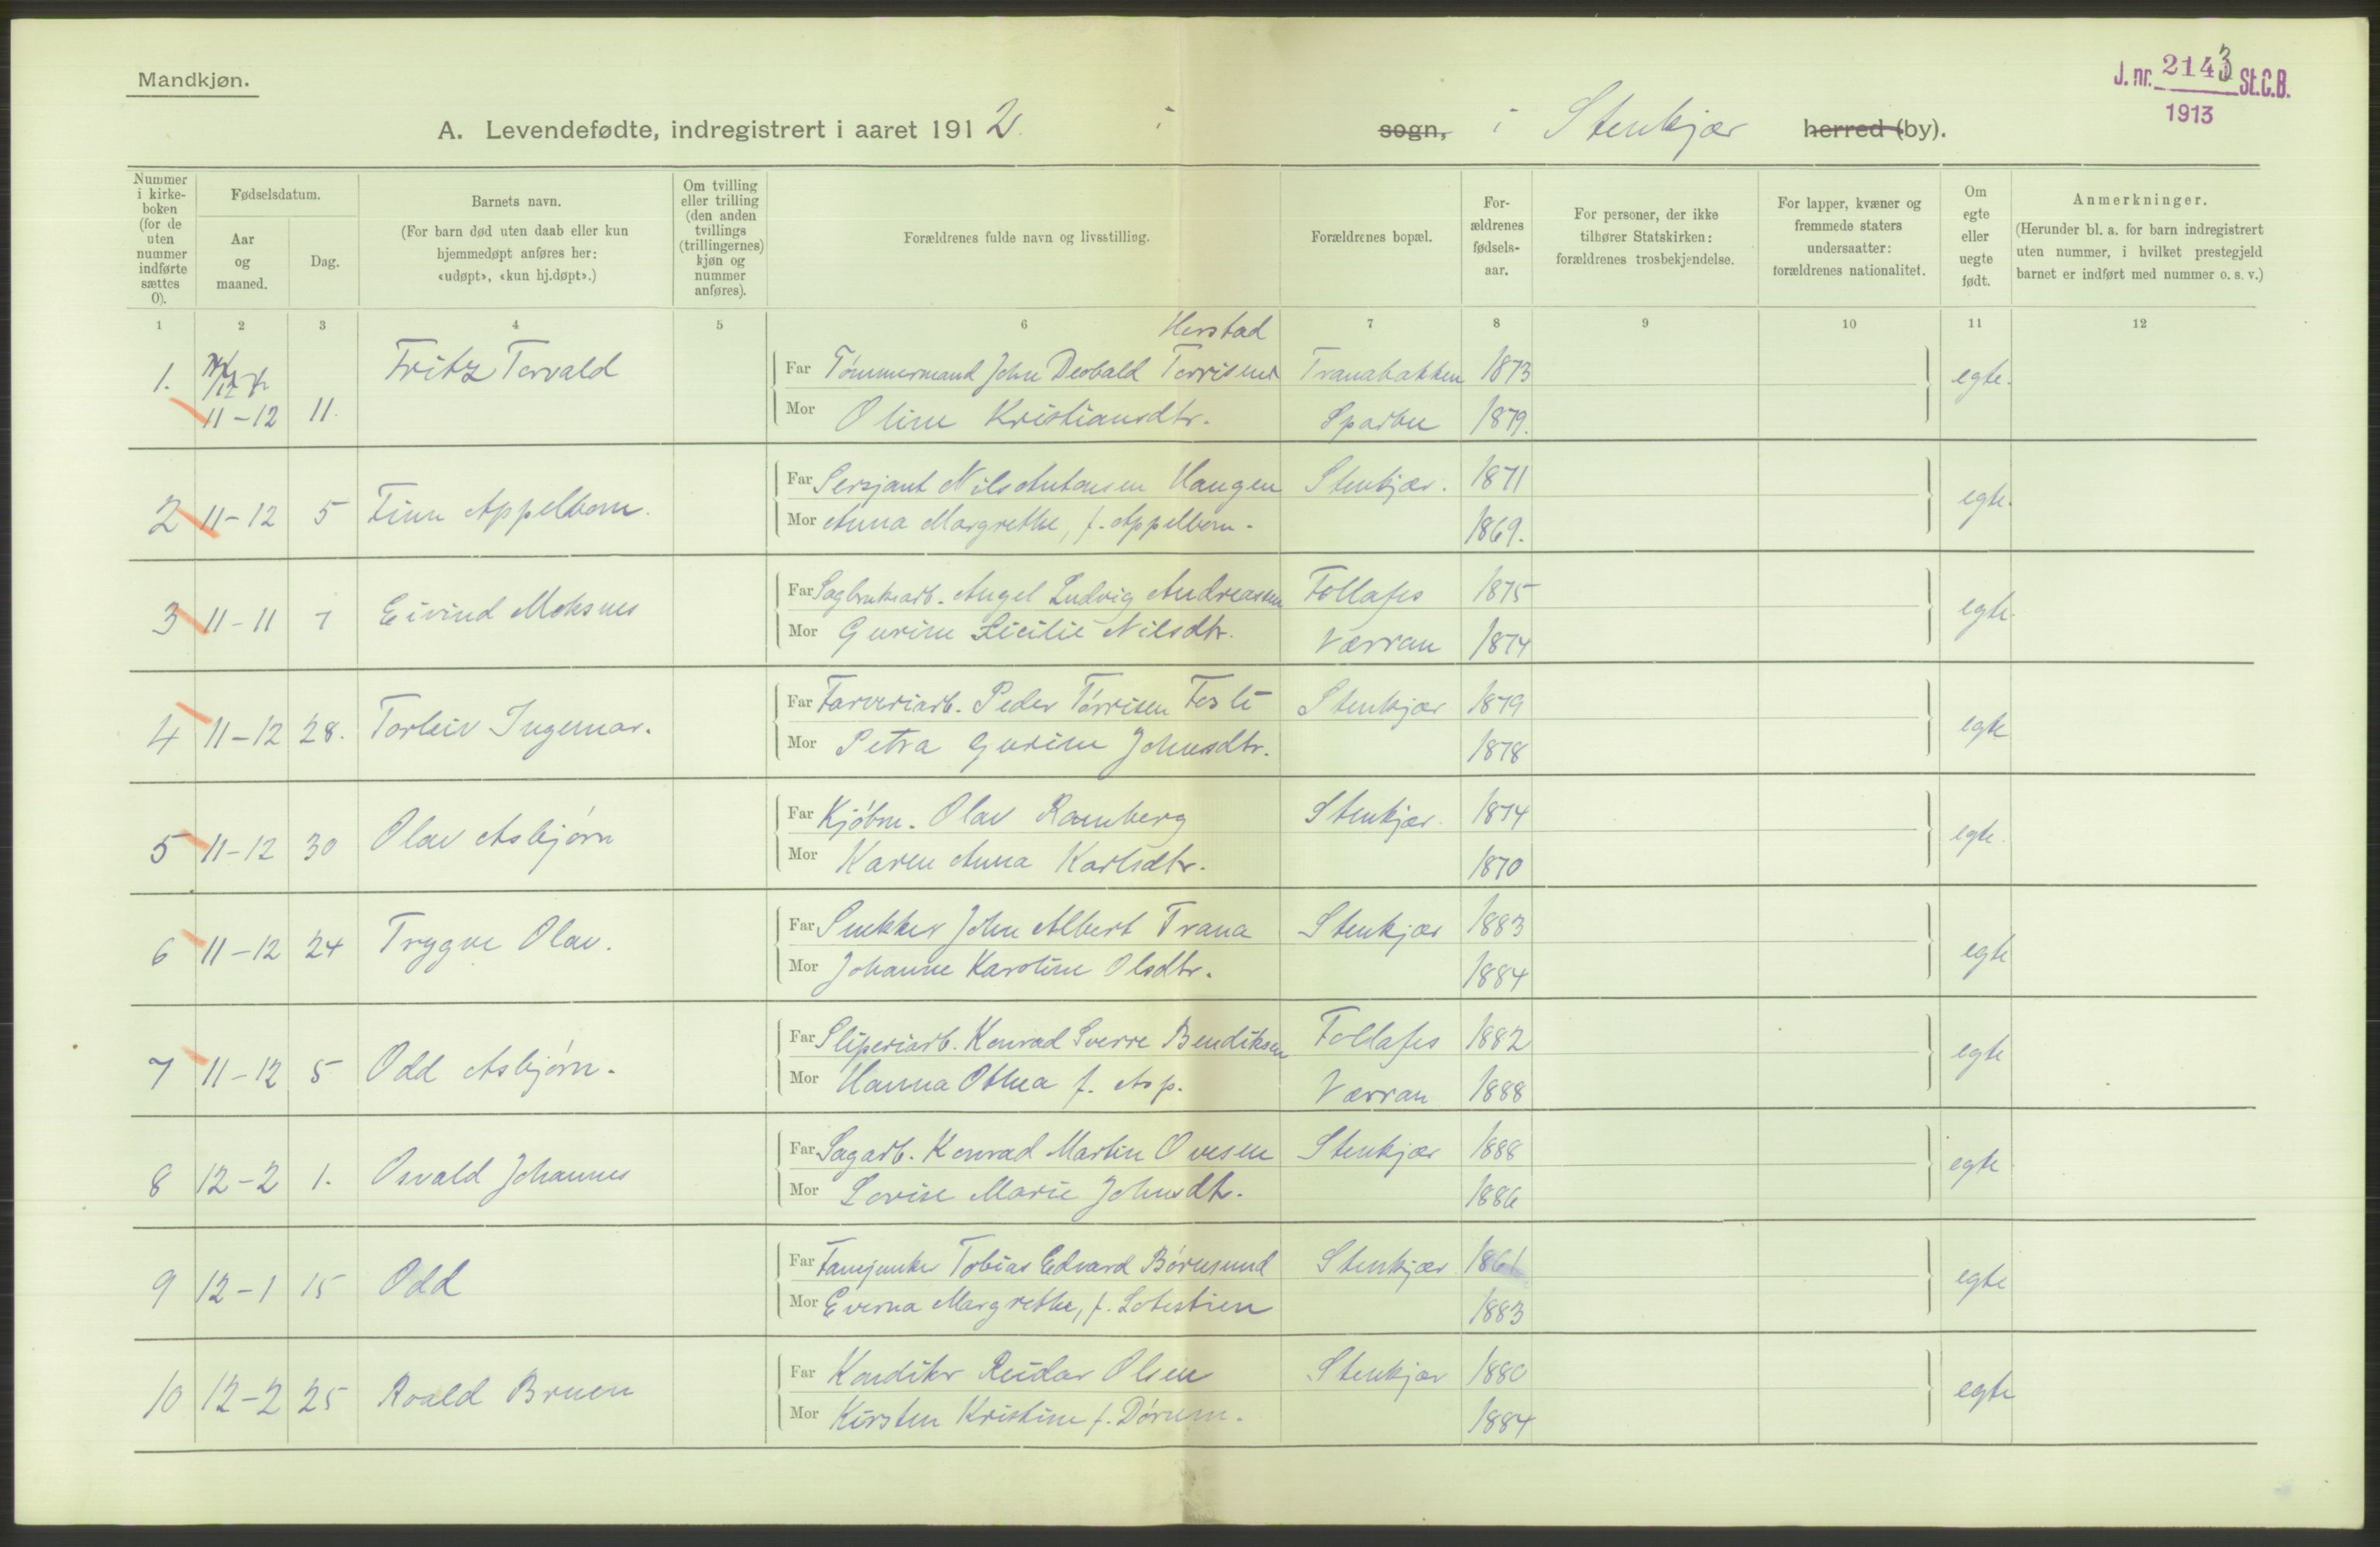 Mandkjøn.
J. nr. 2143 St.C.B.
1913
A. Levendefødte, indregistrert i aaret 1912. i sogn, i Stenkjær herred (by).
Nummer i kirke-boken (for de uten nummer indførte sættes 0).
Fødselsdatum.
Aar og maaned.
Dag.
Barnets navn.
(For barn død uten daab eller kun hjemmedøpt anføres her: «udøpt», «kun hj.døpt».)
Om tvilling eller trilling (den anden tvillings (trillingernes) kjøn og nummer anføres).
Forældrenes fulde navn og livsstilling.
Forældrenes bopæl.
For-ældrenes fødsels-aar.
For personer, der ikke tilhører Statskirken: forældrenes trosbekjendelse.
For lapper, kvæner og fremmede staters undersaatter: forældrenes nationalitet.
Om egte eller uegte født.
Anmerkninger.
(Herunder bl. a. for barn indregistrert uten nummer, i hvilket prestegjeld barnet er indført med nummer o. s. v.)
1 2 3 4 5 6 7 8 9 10 11 12
Herstad
1. 11-12 11. Fritz Torvald Far Tømmermand John Deobald Torrisens Tranabakken 1873 egte.
Mor Oline Kristiansdtr. Sparbu 1879.
2 11-12 5 Finn Appelbom. Far Sersjant Nils Antonsen Haugen Stenkjær. 1871 egte.
Mor Anna Margrethe, f. Appelbom. 1869.
3 11-11 7 Eivind Moksnes Far Sagbruksarb. Angel Ludvig Andreassen Follafos 1875 egte.
Mor Gurine Sicilie Nilsdtr. Værran 1874
4 11-12 28. Torleiv Ingemar. Far Farveriarb. Peder Tørrisen Festi Stenkjær 1879 egte
Mor Petra Gurine Johnsdtr. 1878
5 11-12 30 Olav Asbjørn Far Kjøbm. Olav Ramberg Stenkjær. 1874 egte.
Mor Karen Anna Karlsdtr. 1870
6 11-12 24 Trygve Olav. Far Snekker John Albert Trana Stenkjær 1883 egte
Mor Johanne Karoline Olsdtr. 1884
7 11-12 5 Odd Asbjørn. Far Sliperiarb. Konrad Sverre Bendiksen Follafos 1882 egte
Mor Hanna Othea f. Asp. Værran 1888
8 12-2 1. Osvald Johannes Far Sagarb. Konrad Martin Ovesen Stenkjær 1888 egte
Mor Lovise Marie Johnsdtr. 1886
9 12-1 15 Odd Far Fanejunker Tobias Edvard Børresund Stenkjær 1861 egte
Mor Everna Margrethe, f. 1883
10 12-2 25 Roald Bruen Far Konditor Reidar Olsen Stenkjær 1880 egte
Mor Kirsten Kristine f. Dørum. 1884